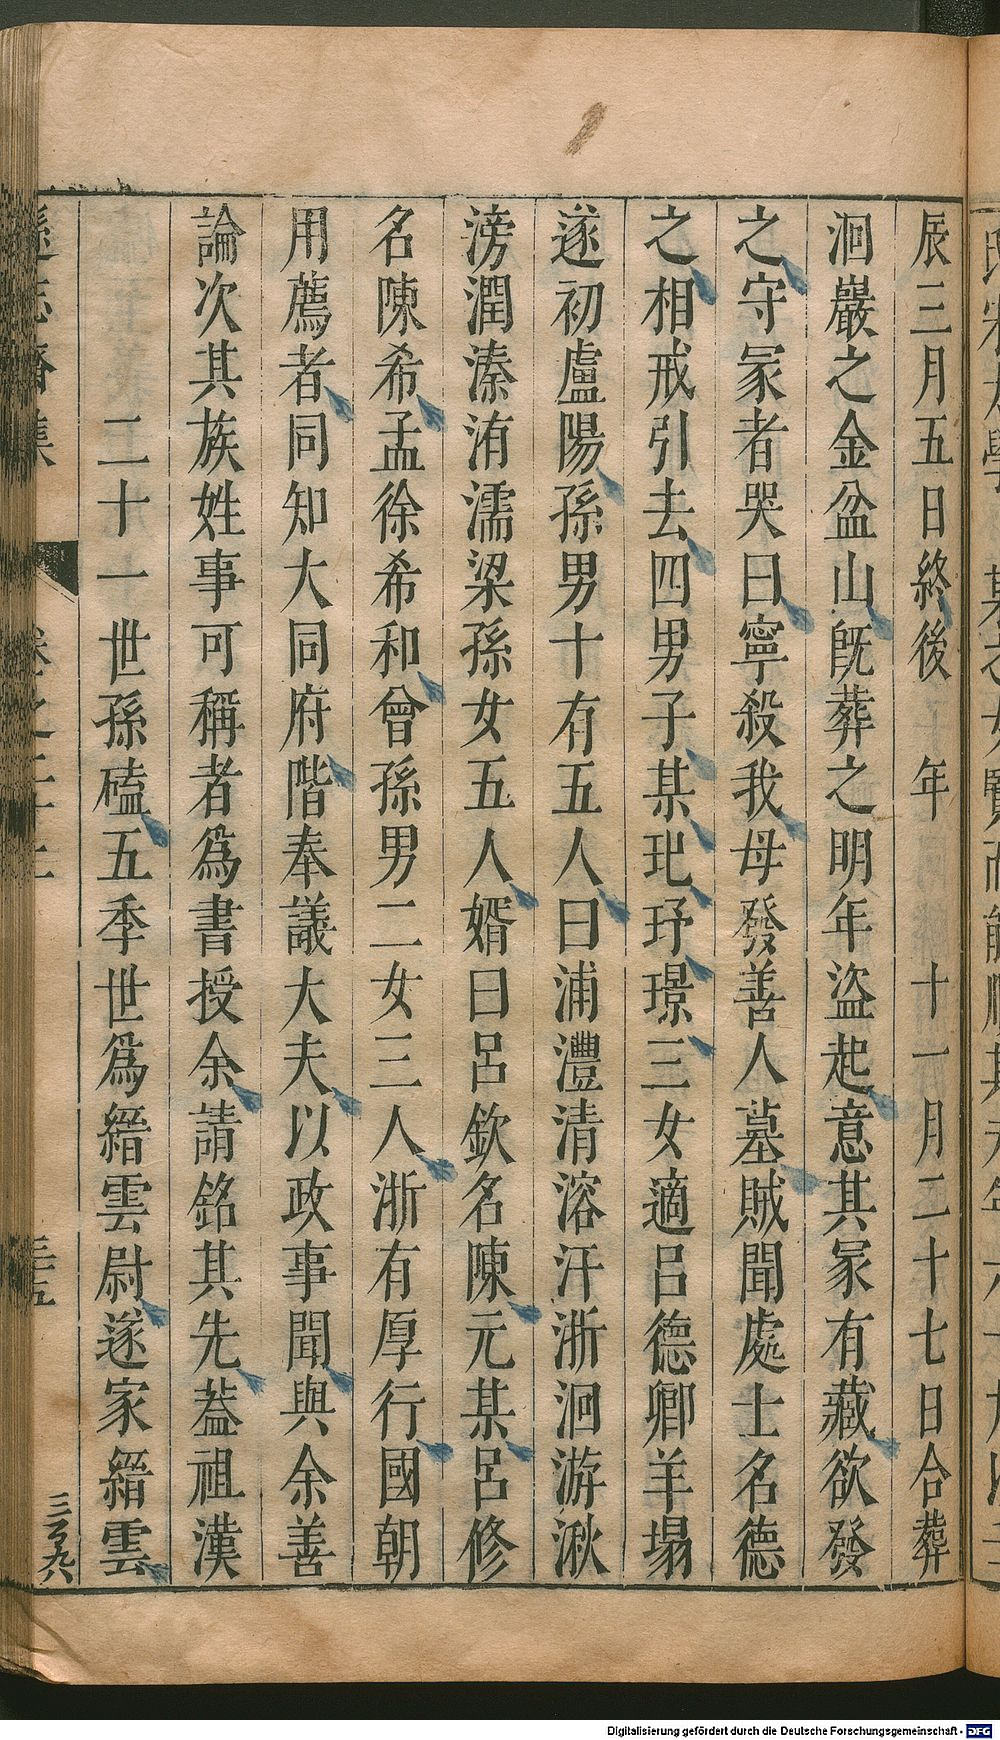 辰三月五日終後　年　十一月二十七日合葬
洄巖之金盆山旣葬之明年盜起意其冢有藏欲發
之守冢者哭曰寧殺我母發善人墓賊聞處士名德
之相戒引去四男子某玘玗璟三女適呂德卿羊塲
遂初盧陽孫男十有五人曰浦灃清溶汗浙洄游湫
滂潤溱洧濡梁孫女五人婿曰呂欽名陳元某呂修
名陳希孟徐希和曾孫男二女三人浙有厚行國朝
用薦者同知大同府階奉議大夫以政事聞與余善
論次其族姓事可稱者爲書授余請銘其先葢祖漢
二十一世孫磕五季世爲縉雲尉遂家縉雲
遜志齋集　卷之二十二　三十五
三百九八
Digitalisierung gefördert durch die Deutsche Forschungsgemeinschaft - DFG